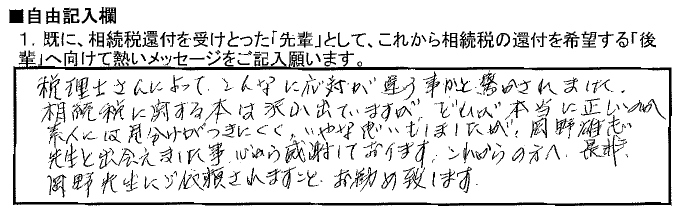 ■自由記入欄
1．既に、相続税還付を受けとった「先輩」として、これから相続税の還付を希望する「後
輩」へ向けて熱いメッセージをご記入願います。
税理士さんによって、こんなに応対が違う事かと驚かされました。
相続税に対する本は沢山出ていますが、どれが本当に正しいのか
素人には見分けがつきにくく、いやな思いもしましたが、岡野雄志
先生と出会えました事、心から感謝しております。これからの方へ、是非、
岡野先生にご依頼されますこと、お勧め致します。